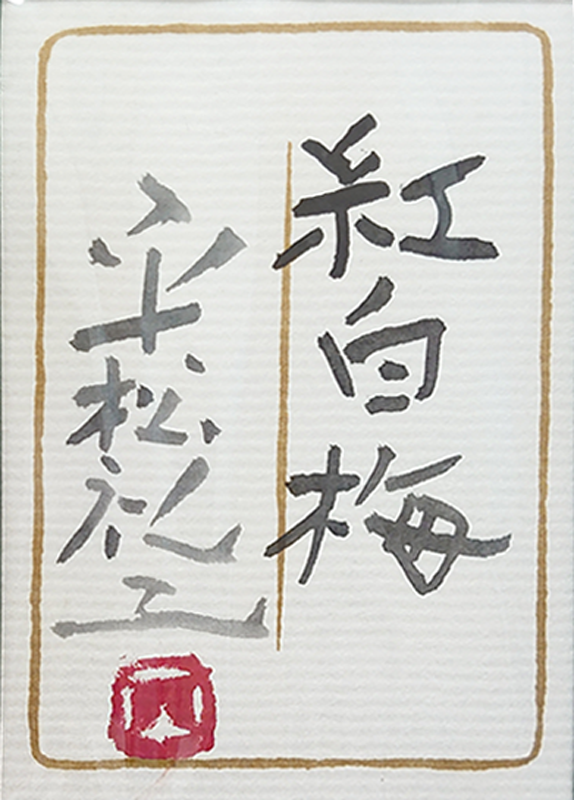 紅白梅
平松礼二